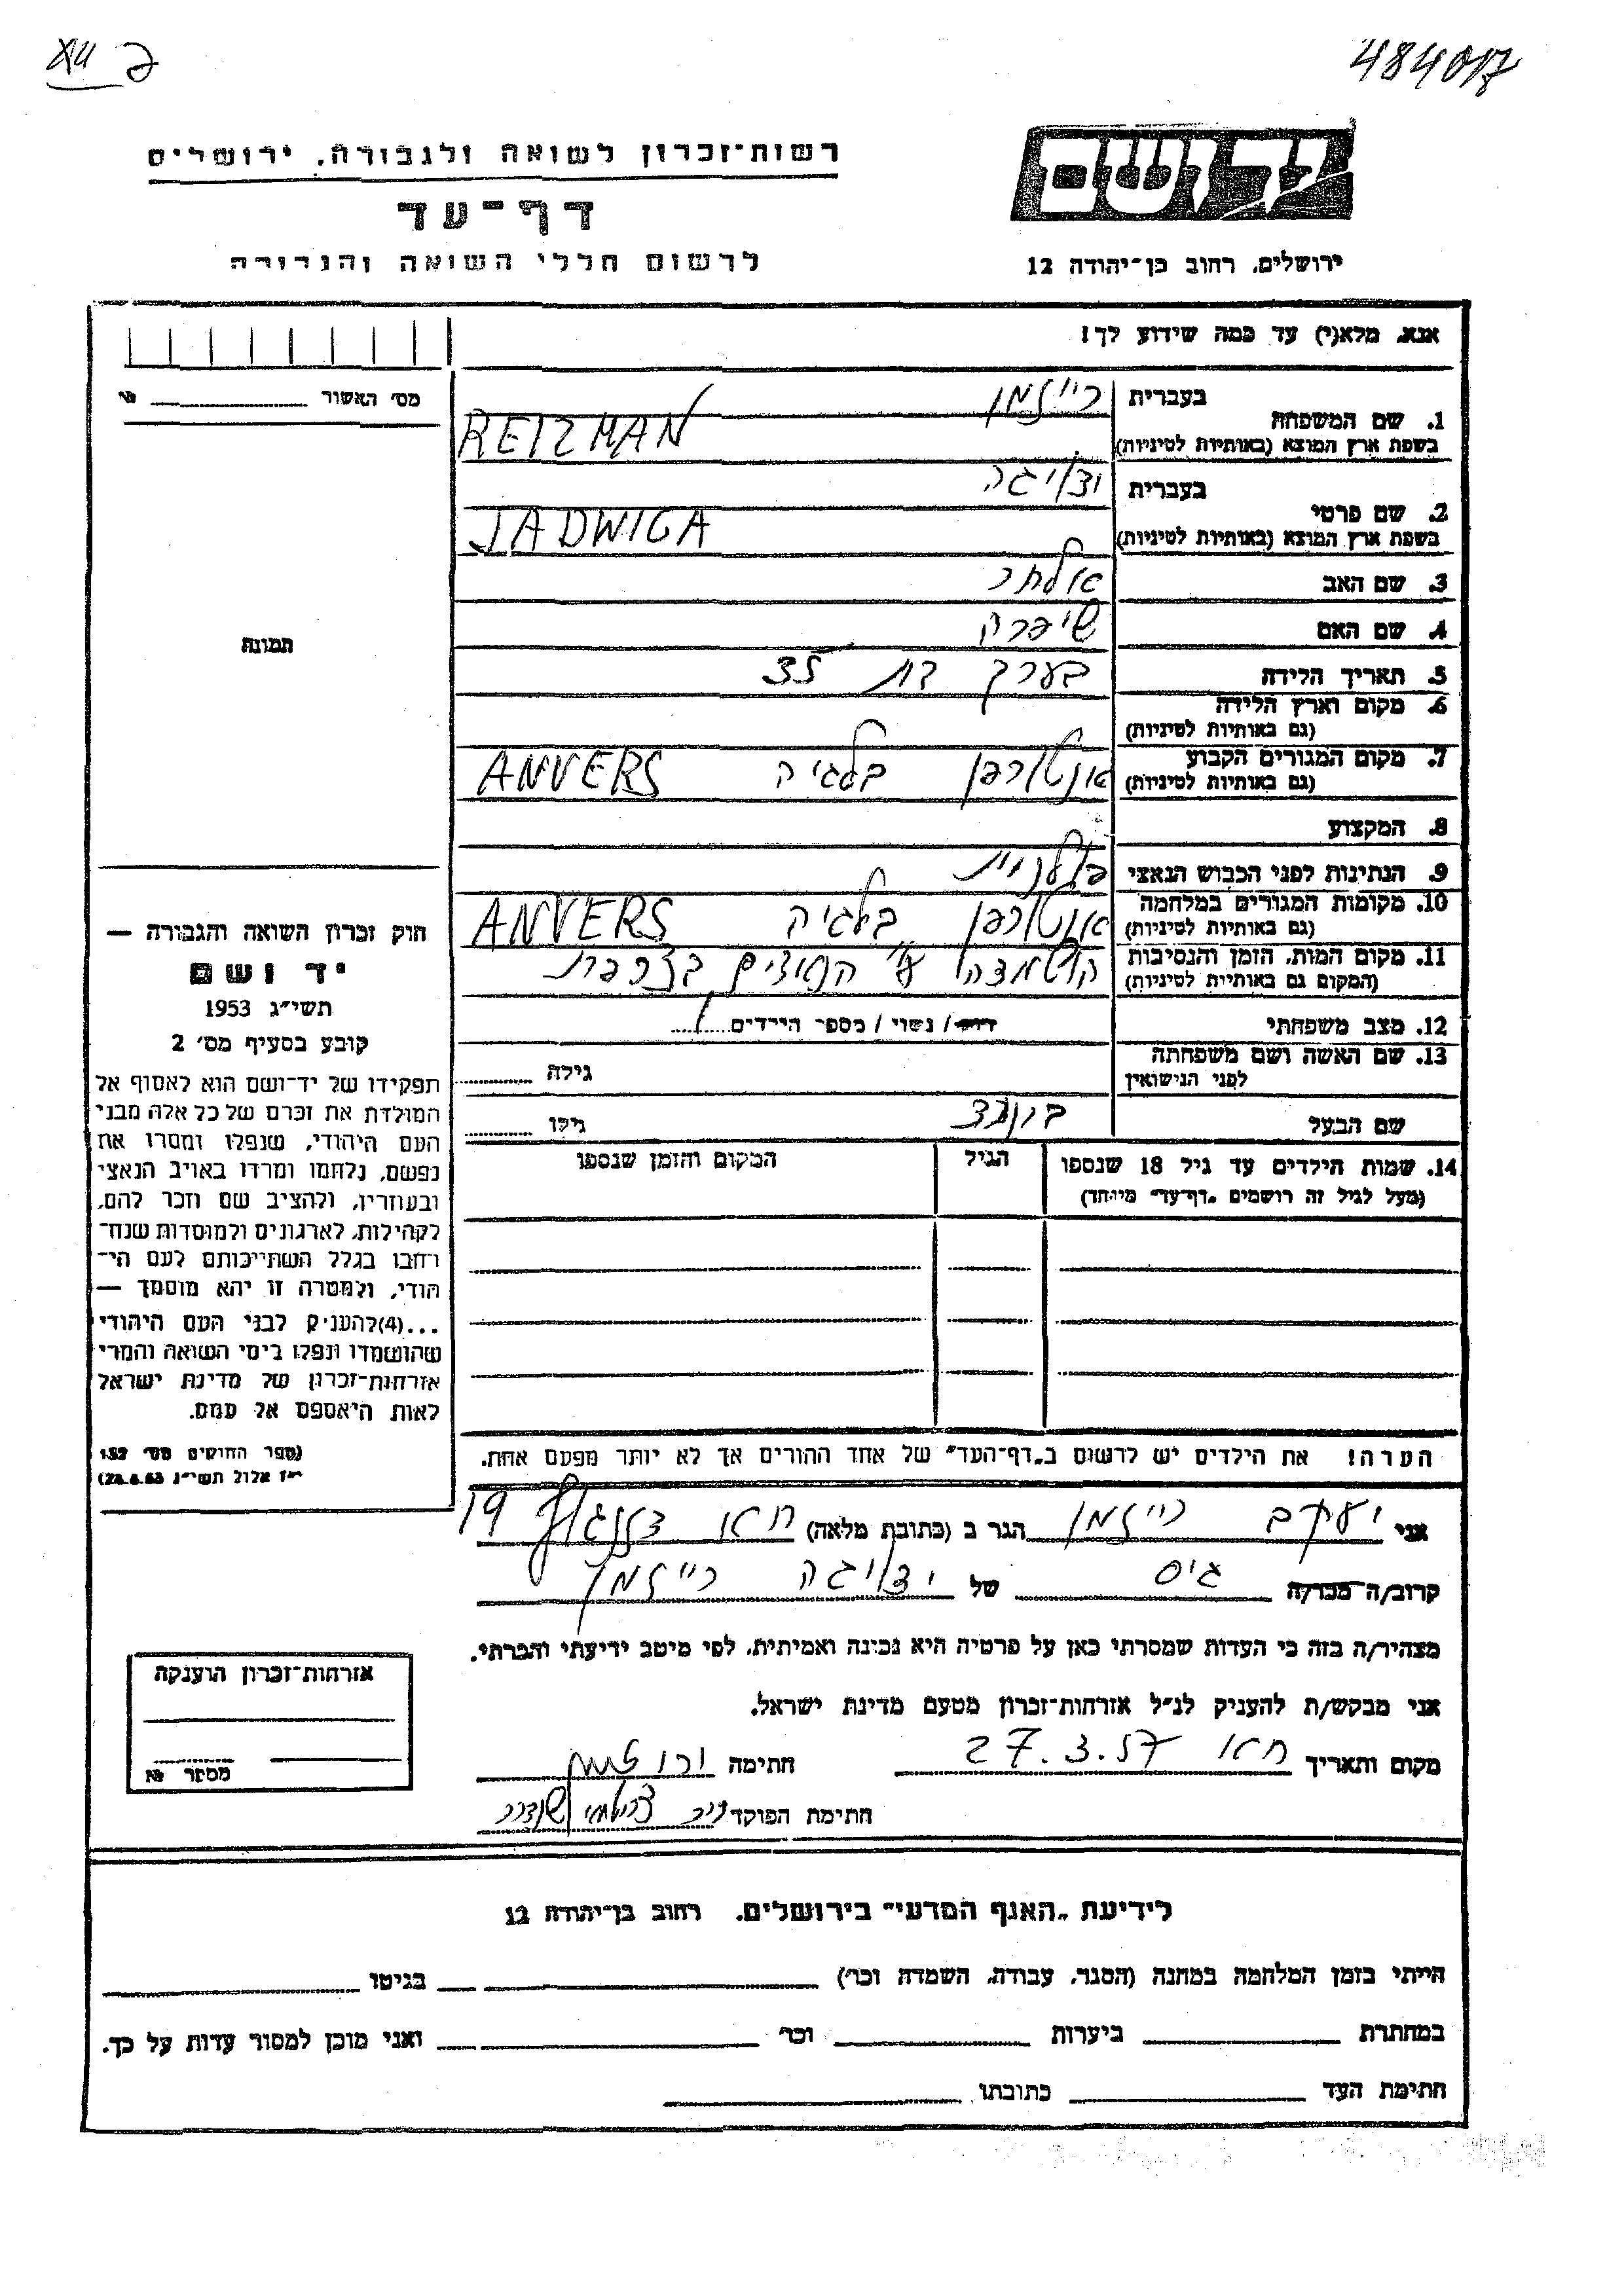 484017
יד ושם
ירושלים, רחוב בן־יהודה 12
רשות־זכרון לשואה ולגבורה, ירושלים
דף־עד
לרשום חללי השואה והגבורה
אנא, מלא(י) עד כמה שידוע לך!
1. שם המשפחה
בעברית רייזמן
בשפת ארץ המוצא (באותיות לטיניות) REIZMAN
2. שם פרטי
בעברית ידויגה
בשפת ארץ המוצא (באותיות לטיניות) JADWIGA
3. שם האב
4. שם האם שיפרה
5. תאריך הלידה בערך בת 35
6. מקום וארץ הלידה
(גם באותיות לטיניות)
7. מקום המגורים הקבוע אנטורפן בלגיה ANVERS
(גם באותיות לטיניות)
8. המקצוע
9. הנתינות לפני הכבוש הנאצי פולנית
10. מקומות המגורים במלחמה אנטורפן בלגיה ANVERS
(גם באותיות לטיניות)
11. מקום המות, הזמן והנסיבות הושמדה ע"י הנאצים בצרפת
(המקום גם באותיות לטיניות)
12. מצב משפחתי רווק / נשוי / מספר הילדים
13. שם האשה ושם משפחתה
לפני הנישואין גילה
שם הבעל גילו
14. שמות הילדים עד גיל 18 שנספו הגיל המקום והזמן שנספו
(מעל לגיל זה רושמים „דף־עד" מיוחד)
הערה! את הילדים יש לרשום ב„דף־העד" של אחד ההורים אך לא יותר מפעם אחת.
מס׳ האשור №
תמונה
חוק זכרון השואה והגבורה —
יד ושם
תשי"ג 1953
קובע בסעיף מס׳ 2
תפקידו של יד־ושם הוא לאסוף אל
המולדת את זכרם של כל אלה מבני
העם היהודי, שנפלו ומסרו את
נפשם, נלחמו ומרדו באויב הנאצי
ובעוזריו, ולהציב שם וזכר להם,
לקהילות, לארגונים ולמוסדות שנח־
רבו בגלל השתייכותם לעם הי־
הודי, ולמטרה זו יהא מוסמך —
...(4)להעניק לבני העם היהודי
שהושמדו ונפלו בימי השואה והמרי
אזרחות־זכרון של מדינת ישראל
לאות היאספם אל עמם.
(ספר החוקים מס׳ 132
י"ז אלול תשי"ג 28.8.53)
אני יעקב רייזמן הגר ב (כתובת מלאה) 19
קרוב/ה מכר/ה גיס של ידויגה רייזמן
מצהיר/ה בזה כי העדות שמסרתי כאן על פרטיה היא נכונה ואמיתית, לפי מיטב ידיעתי והכרתי.
אני מבקש/ת להעניק לנ"ל אזרחות־זכרון מטעם מדינת ישראל.
מקום ותאריך 27.3.57 חתימה
חתימת הפוקד
אזרחות־זכרון הוענקה
מספר №
לידיעת „האגף המדעי" בירושלים, רחוב בן־יהודה 12
הייתי בזמן המלחמה במחנה (הסגר, עבודה, השמדה וכו׳) בגיטו
במחתרת ביערות וכו׳ ואני מוכן למסור עדות על כך.
חתימת העד כתובתו